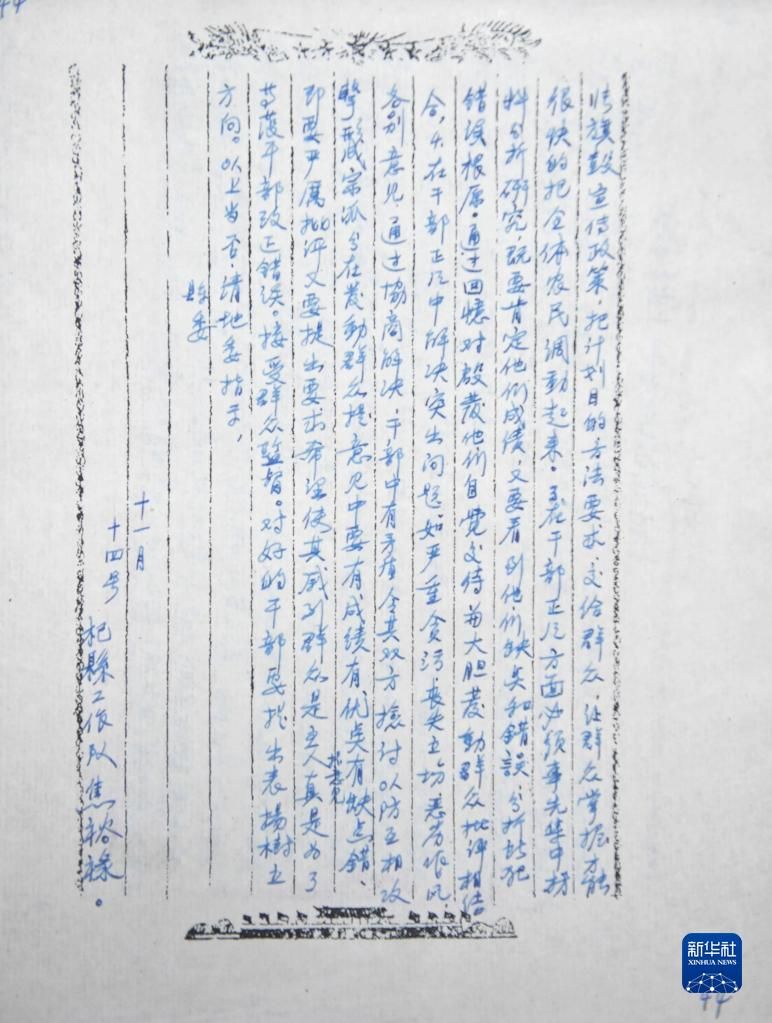 44
旗鼓宣传政策，把计划目的方法要求，交给群众，让群众掌握，才能
很快的把全体农民调动起来。3在干部正风方面必须事先集中材
料分析研究，既要肯定他们成绩，又要看到他们缺点和错误，分析其犯
错误根原。通过回憶对啟發他们自覚交待和大胆發動群众批评相结
合，4.在干部正风中解决突出问题，如严重贪污，丧失立场，恶劣作风，
各别意见，通过協商解决，干部中有矛盾，令其双方检讨以防互相攻
擊形成宗派，5在發動群众提意见中要有成绩有优点有缺点错，
即要严厲批评又要提出要求希望使其感到群众是主人真是为了
落干部改正错误。接受群众监督。对好的干部要提出表扬樹立
方向。以上当否，请地委指示，
提意见
县委
十一月
十四号
杞縣工作队焦裕禄。
新华社
XINHUA NEWS
44